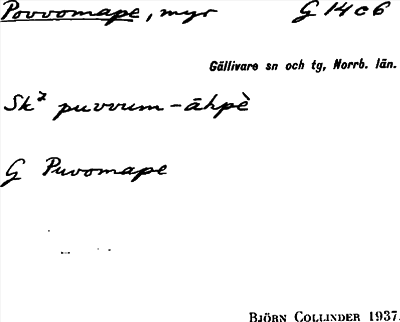 Povvomape, myr G 14 c 6
Gällivare sn och tg, Norrb. län.
Sk² puvvum-āhpè
G Puvomape
BJÖRN COLLINDER 1937.